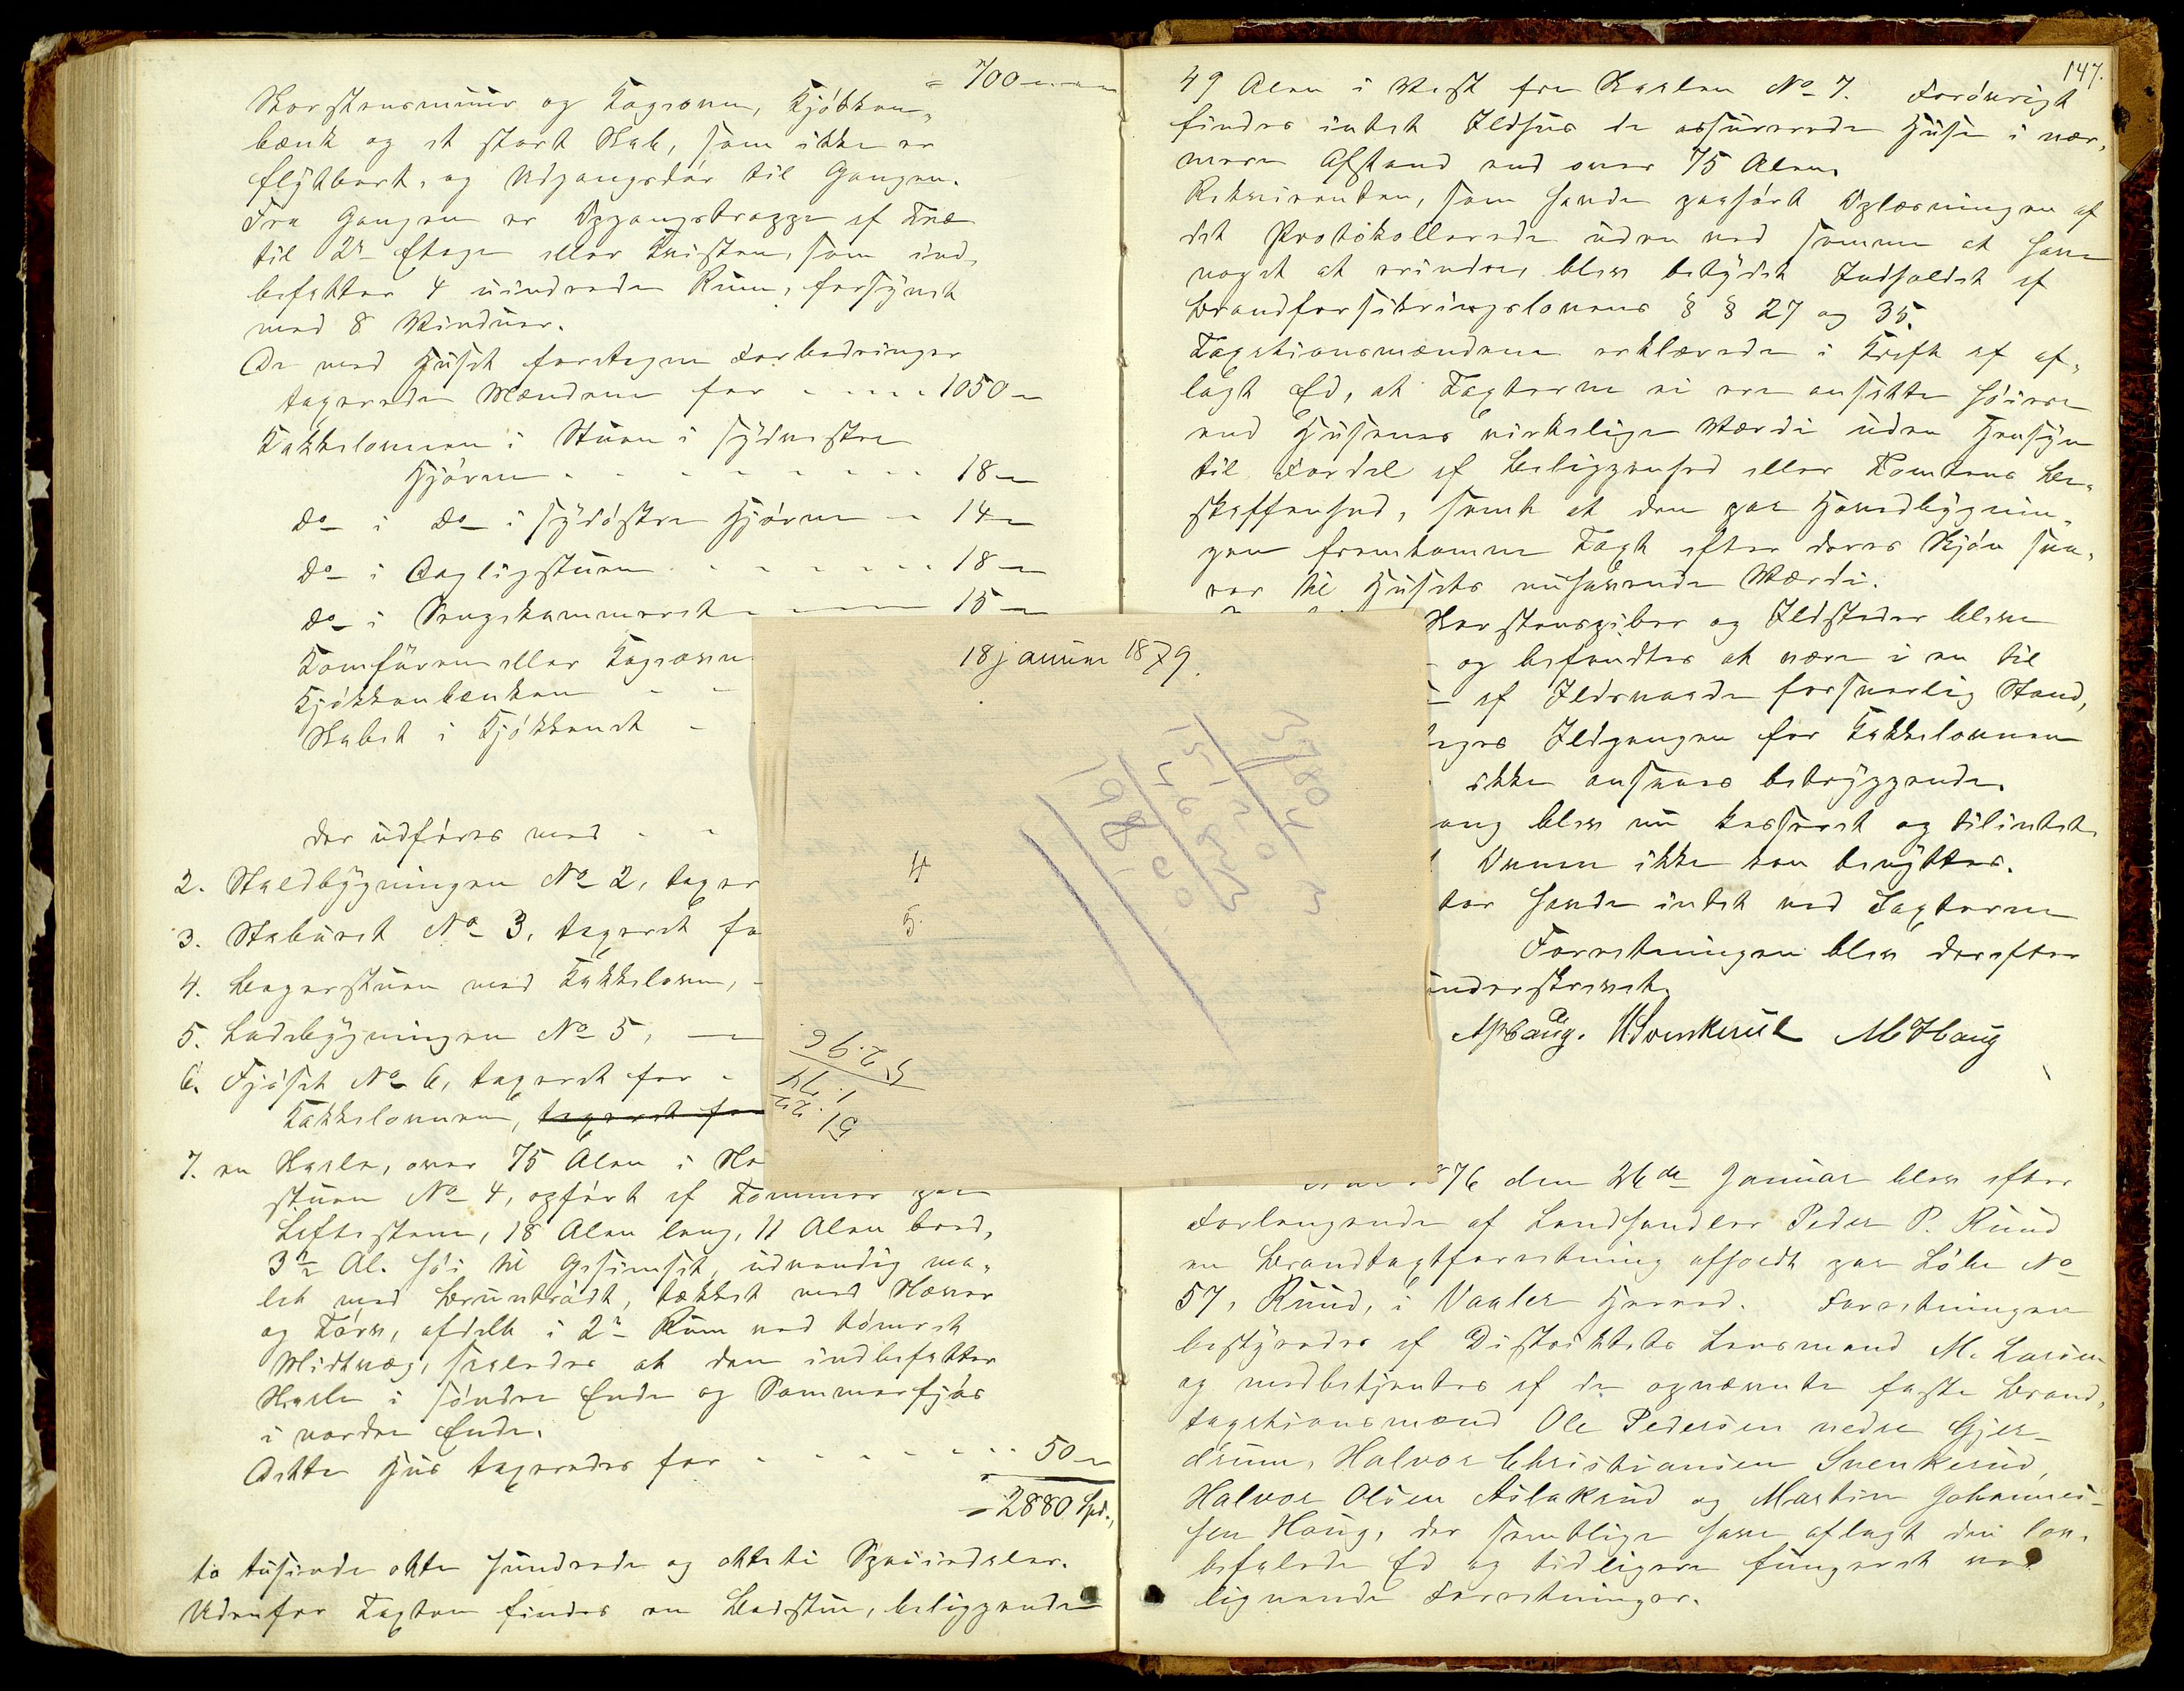 = 700
Skorstensmuur og Kogeovn, Kjökken-
bænk og et stort Skab, som ikke er
flytbart, og Udgangsdör til Gangen.
Fra Gangen er Opgangstrappe af Træ
til 2n Etage eller Kvisten, som ind-
befatter 4 uindredede Rum, forsynet
med 8 Vinduer.
De ved Huset foretagne Forbedringer
taxerede Mændene for 1050
Kakkelovnen i Stuen i sydvestre
Hjörne 18
Do i Do i sydöstre Hjörne 14
Do i Dagligstuen 18
Do i Sengekammeret 15
Komfüren eller Kogeovn
Kjökkenbænken
Skabet i Kjökkenet
der udföres med
2. Staldbygningen No 2, taxer
3. Stabüret No 3, taxeret fo
4. Bagerstuen med Kakkelovn,
5. Ladebygningen No 5,
6. Fjöset No 6, taxeret for
Kakkelovnen, taxeret for
7. en Skaale, over 75 Alen i
stuen No 4, opfört af Tömmer paa
Löftesteen, 18 Alen lang, 11 Alen bred,
3½ Al. höi til Gesimset, udvendig ma-
let med Bruntrödt, tækket med Næver
og Törv, afdelt i 2n Rum ved tömret
Midtvæg, saaledes at den indbefatter
Skaale i söndre Ende og Sommerfjös
i nordre Ende.
Dette Hus taxeredes for 50
= 2880 Spd.,
to tusinde otte hundrede og otteti Speciedaler.
Udenfor Taxten findes en Badstue, beliggende
147.
49 Alen i Vest fra Skaalen No 7. Forövrigt
findes intet Ildhus de assurerede Huse i nær-
mere Afstand end over 75 Alen.
Rekvirenten, som havde paahört Oplæsningen af
det Protokollerede uden ved samme at have
noget at erindre, blev betydet Indholdet af
Brandforsikringslovens § § 27 og 35.
Taxationsmændene erklærede i Kraft af af-
lagt Ed, at Taxterne ei ere ansatte höiere
end Husenes virkelige Værdi uden Hensyn
til Fordel af Beliggenhed eller Tomtens Be-
skaffenhed, samt at den paa Hovedbygnin-
gen fremkomne Taxt efter deres Skjön sva-
rer til Husets nuhavende Værdi.
Skorstenspiber og Ildsteder bleve
og befandtes at være i en til
af Ildsvaade forsvarlig Stand,
Ildgangen for Kakkelovnen
ikke ansaaes betryggende.
ang blev nu kasseret og tilintet-
Ovnen ikke kan benyttes.
ter havde intet ved Taxterne
Forretningen blev derefter
underskrevet.
HSvenkerud MHaug
18 januar 1879.
4
5.
76 den 26de Januar blev efter
Forlangende af Landhandler Peder P. Ruud
en Brandtaxtforretning afholdt paa Löbe No
57, Ruud, i Vaaler Herred. Forretningen
bestyredes af Distriktets Lensmand M. Larsen
og medbetjentes af de opnævnte faste Brand-
taxationsmænd Ole Pedersen nedre Gjer-
drum, Halvor Christiansen Svenkerud,
Halvor Olsen Aslakrud og Martin Johannes-
sen Haug, der samtlige have aflagt den lov-
befalede Ed og tidligere fungeret ved
lignende Forretninger.